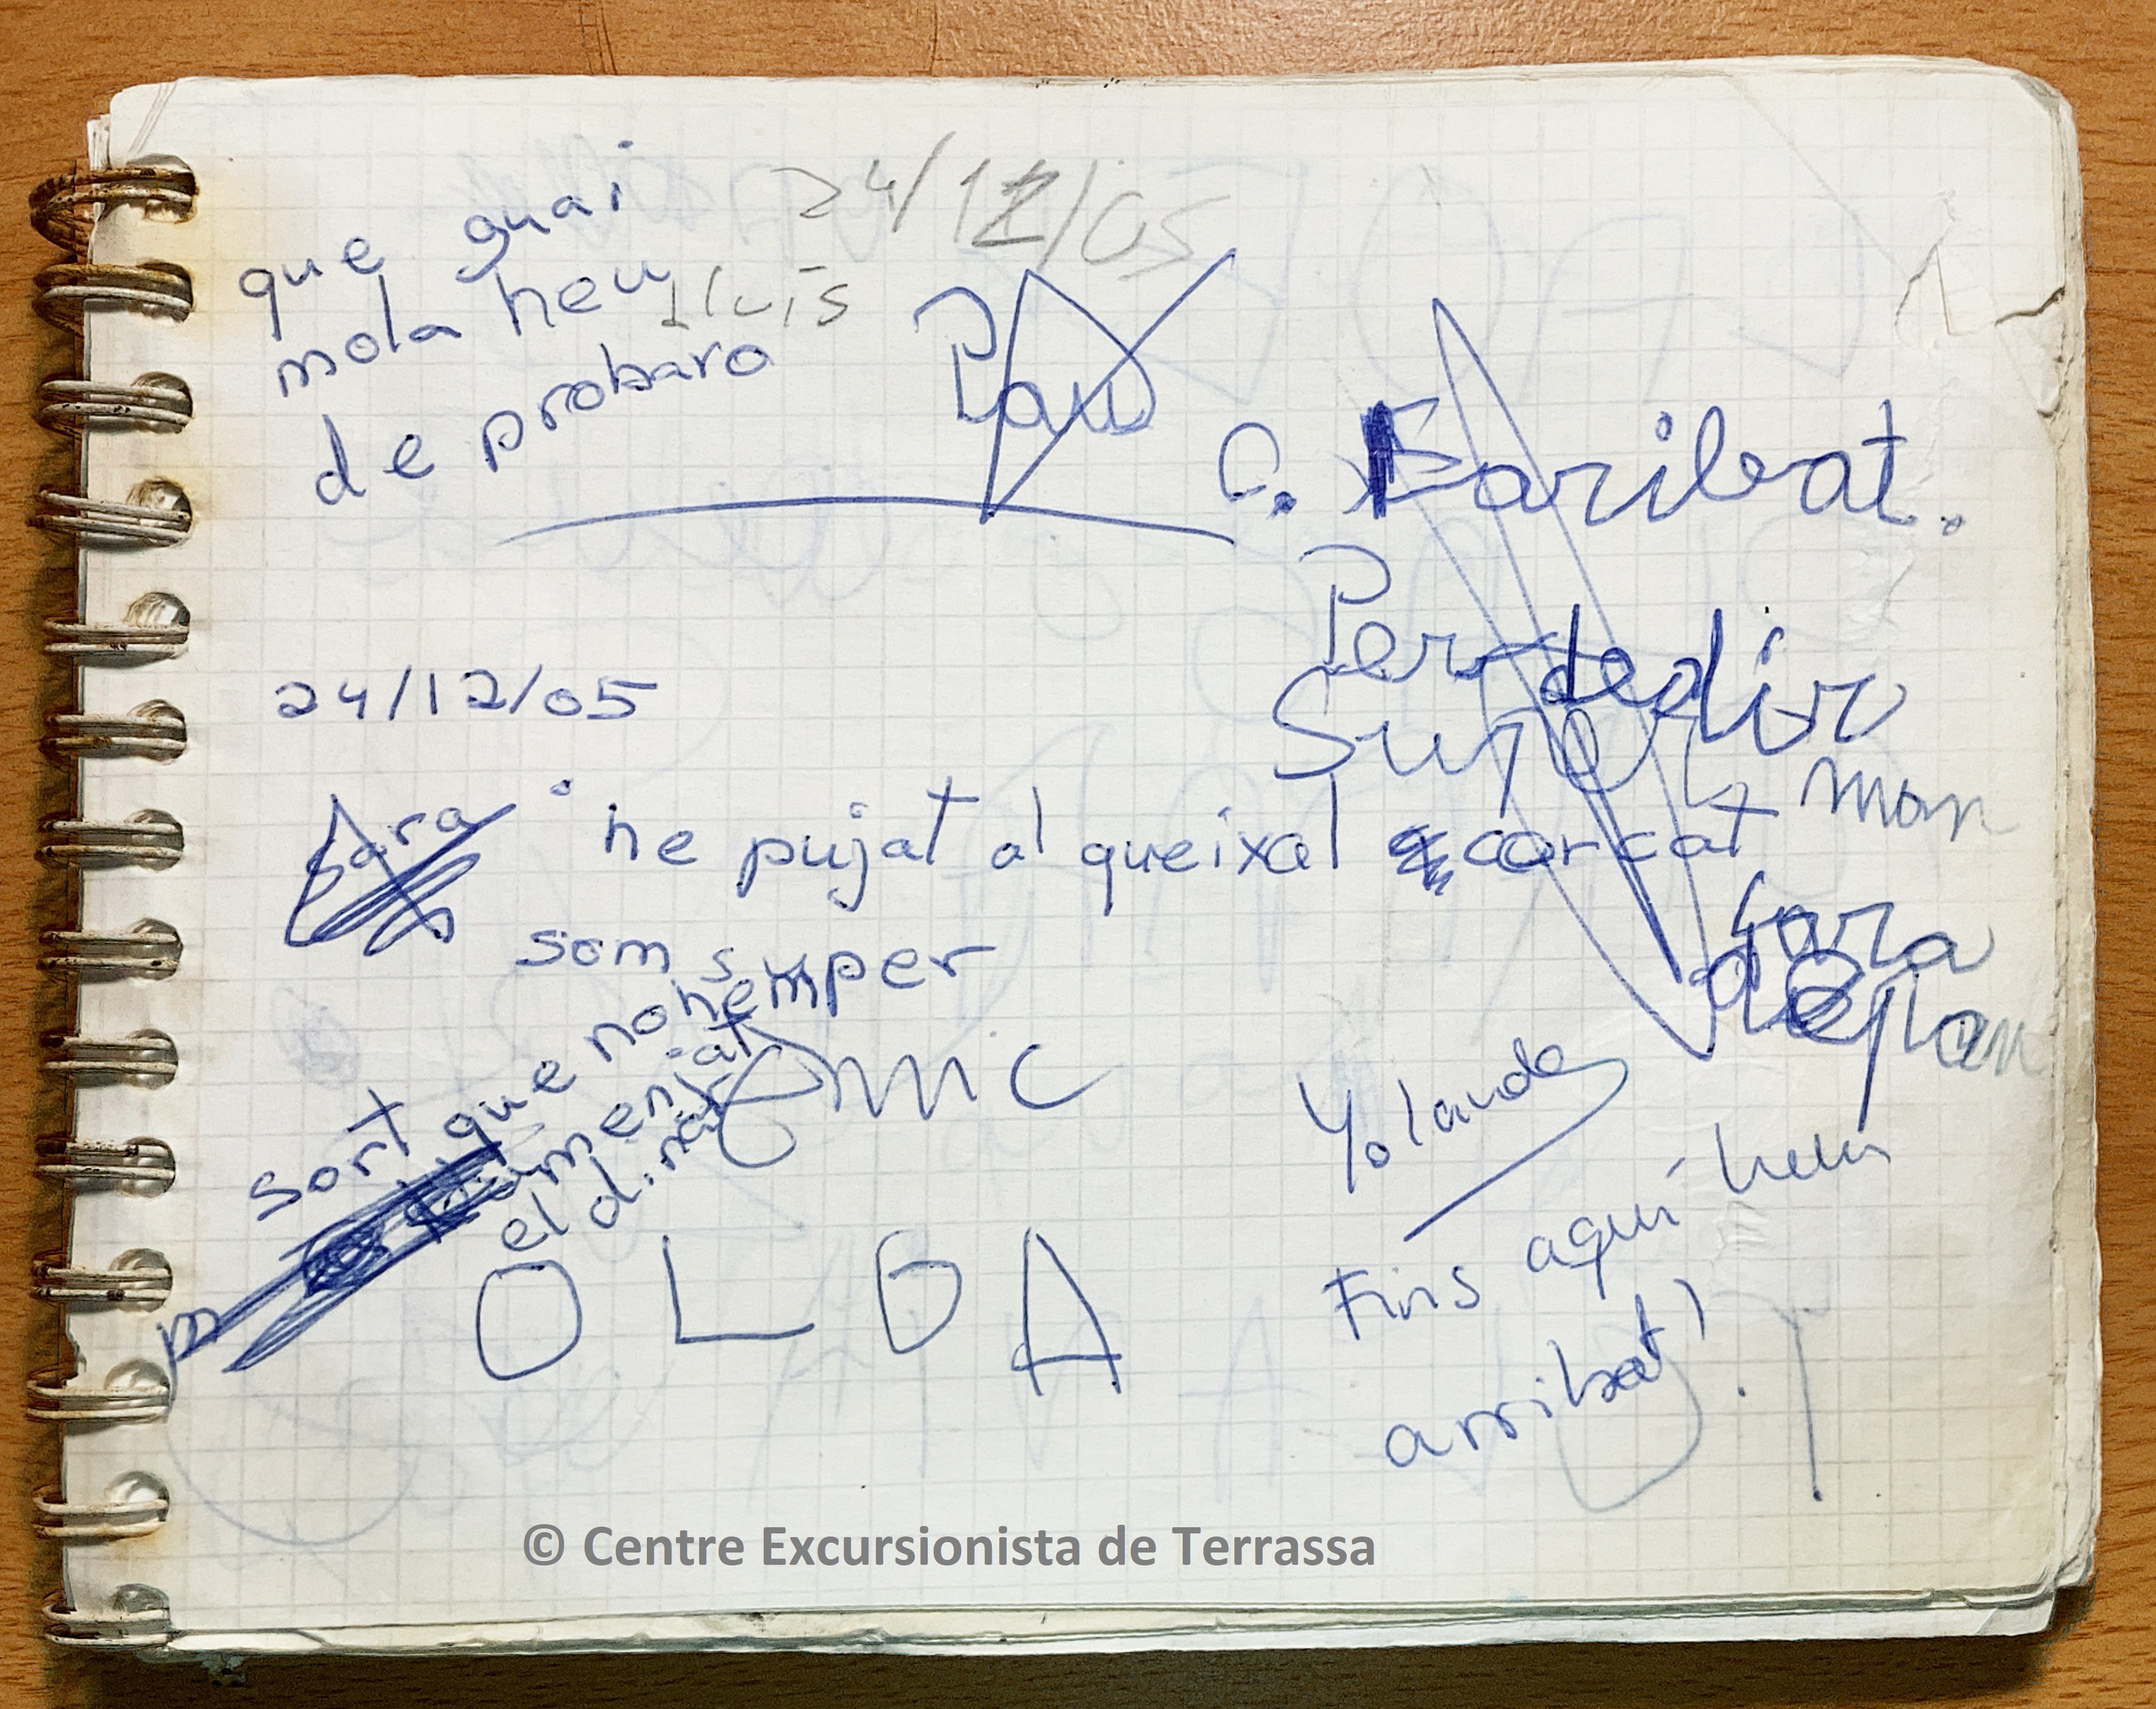 24/12/05
que guai
mola heu
lluís
de probaro
Pau
C. Baribat.
Per dedir
Super
24/12/05
mon
Sara he pujat al queixal corcat
Sara
som semper
sort que no hem
comenjat
el dinar
Enric
Yolanda
OLGA
Fins aquí hem
arribat!
© Centre Excursionista de Terrassa